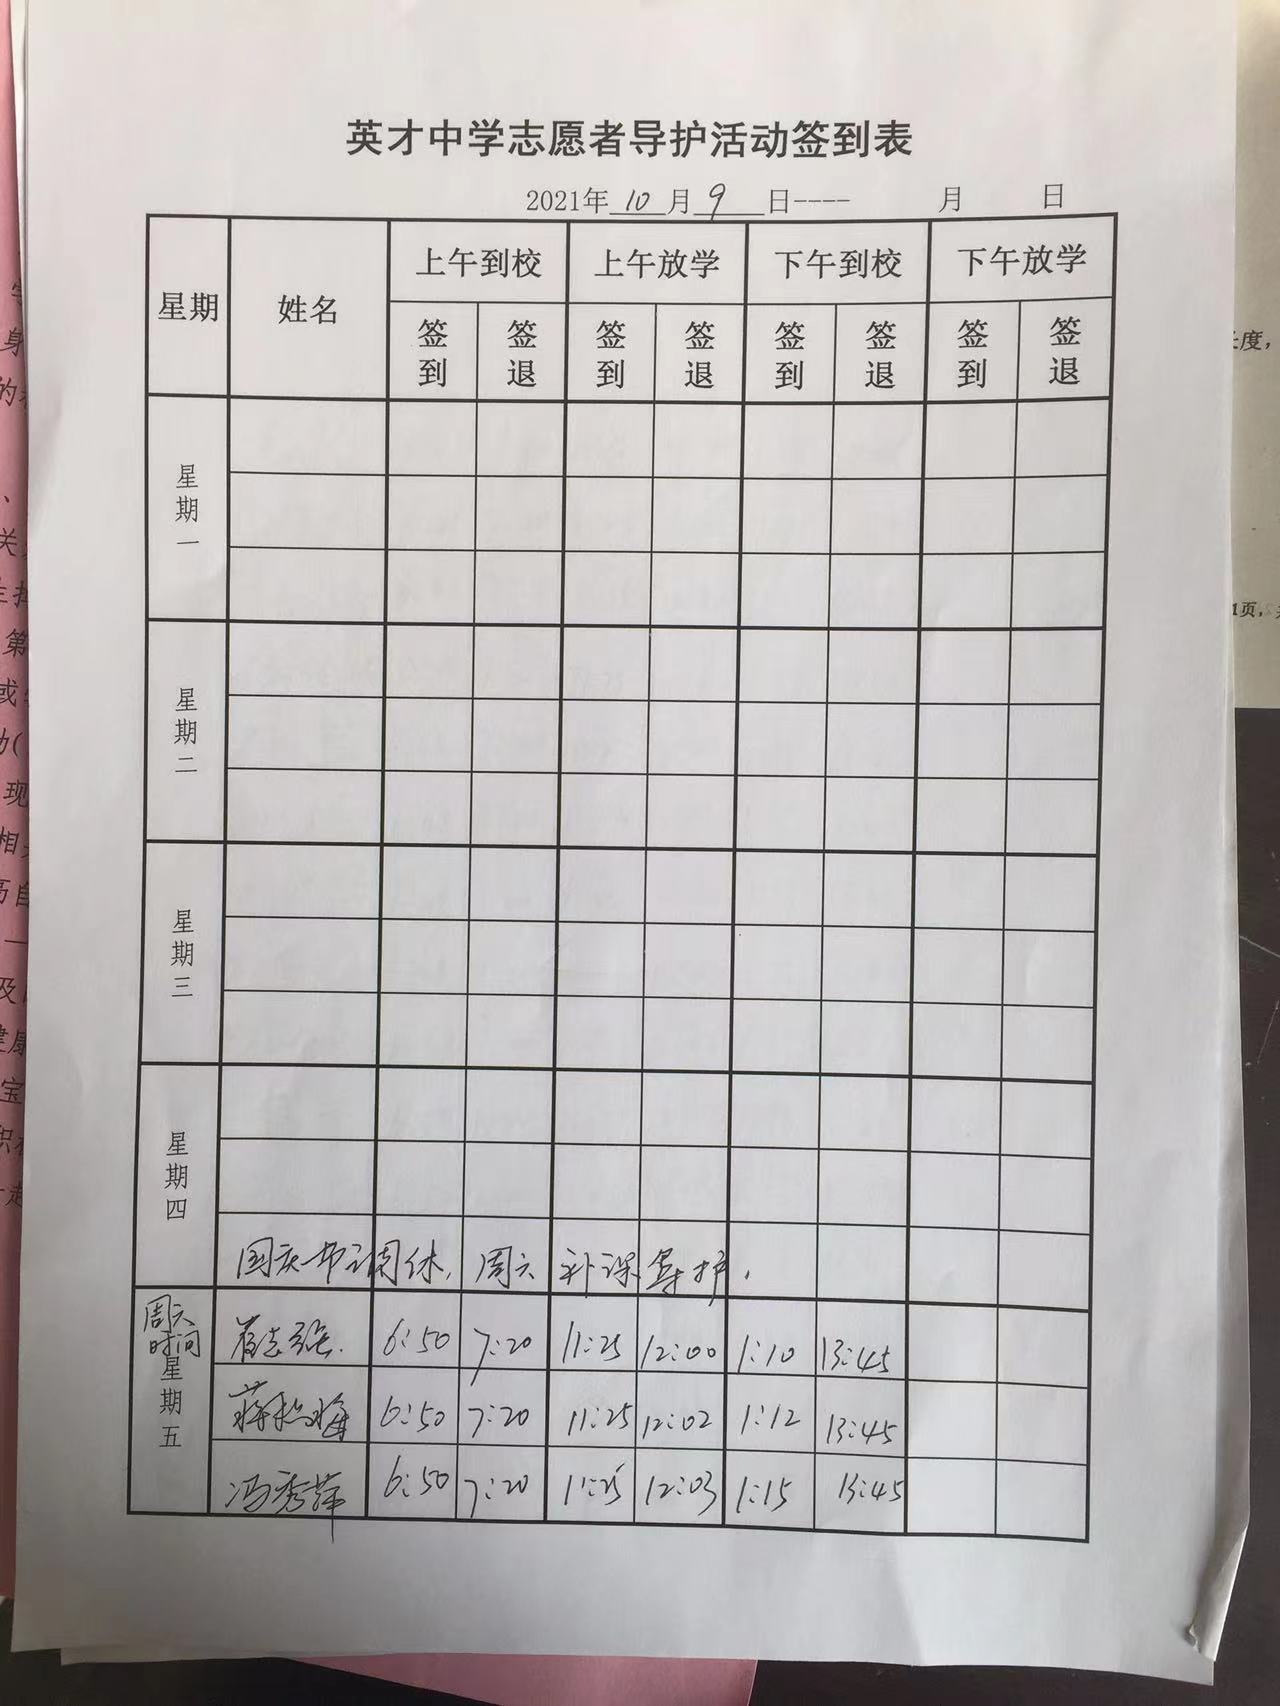 英才中学志愿者导护活动签到表
2021年 10 月 9 日---- 月 日
星期 姓名 上午到校 上午放学 下午到校 下午放学
签到 签退 签到 签退 签到 签退 签到 签退
星期一
星期二
星期三
星期四
国庆节调休，周六补课导护.
周六时间
星期五
6:50 7:20 11:25 12:00 1:10 13:45
6:50 7:20 11:25 12:02 1:12 13:45
冯秀萍 6:50 7:20 11:25 12:03 1:15 13:45
长度，
1页，
身
的
、
关
第
或
现
相
自
一
及
健康
宝
织